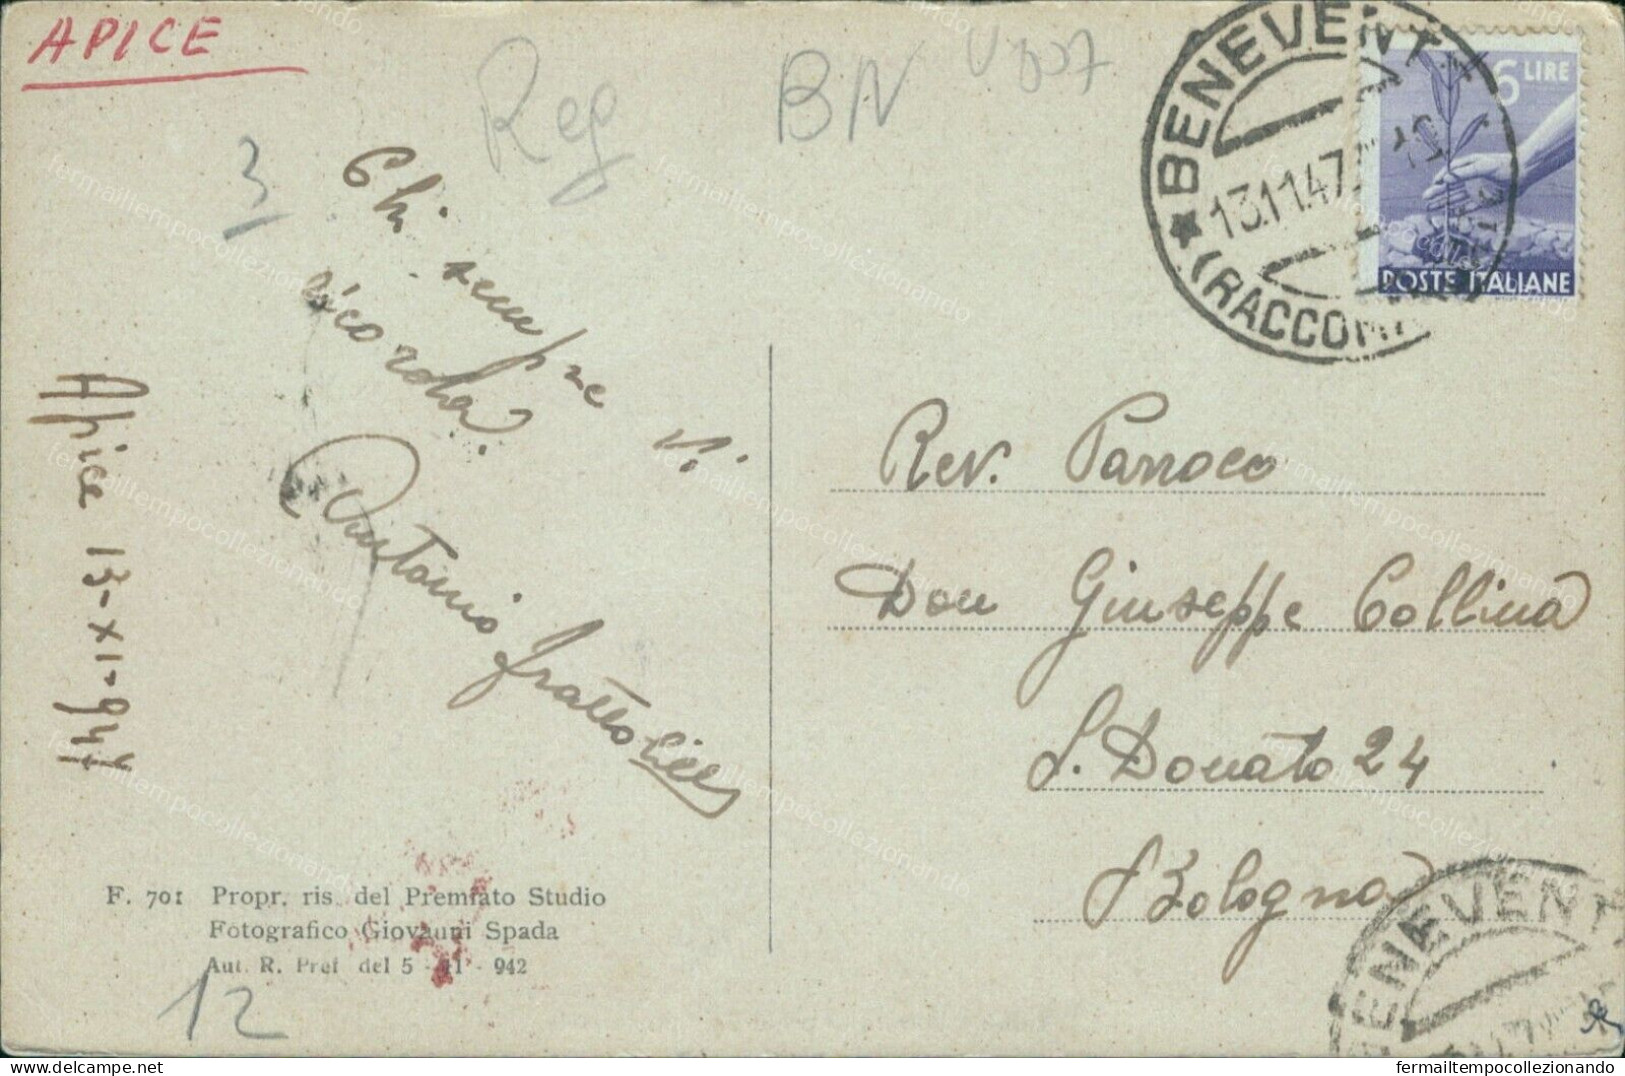 APICE
Reg
BN
3
Chi sempre Vi
ricorda.
Antonio frattolillo
Apice 13-XI-947
F. 701 Propr. ris. del Premiato Studio
Fotografico Giovanni Spada
Aut. R. Pref del 5 - 11 - 942
12
BENEVENTO
13.11.47
(RACCOM
6 LIRE
POSTE ITALIANE
Rev. Parroco
Don Giuseppe Collina
S. Donato 24
Bologna
BENEVENT
fermailtempocollezionando
delcampe.net
fermailtempocollezionando